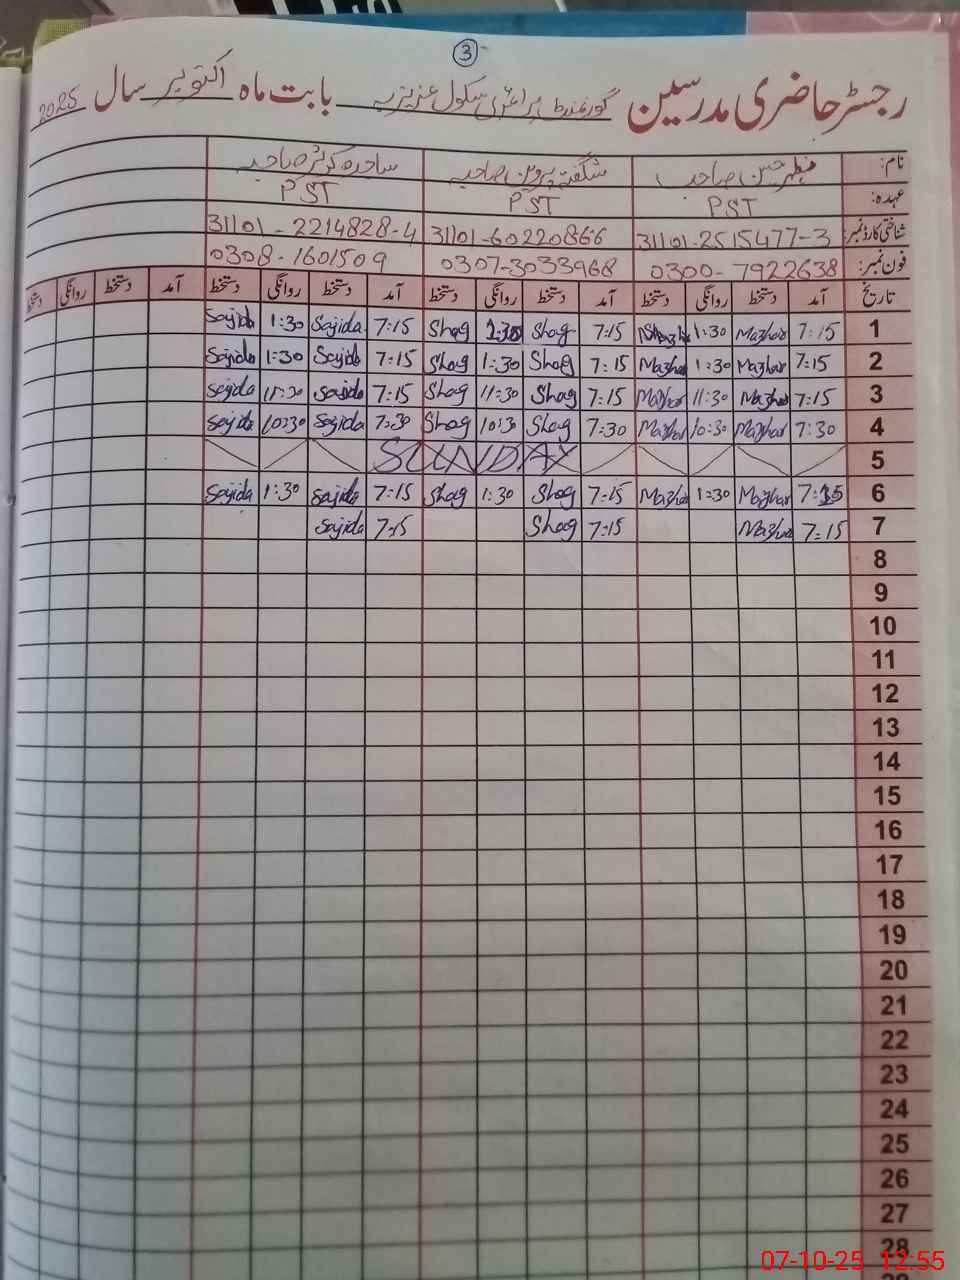 3
رجسٹر حاضری مدرسین گورنمنٹ پرائمری سکول عزیزیہ بابت ماہ اکتوبر سال 2025
نام: مظہر حسن صاحب شگفتہ پروین صاحبہ ساجدہ کوثر صاحبہ
عہدہ: PST PST PST
شناختی کارڈ نمبر: 31101-2515477-3 31101-60220866 31101-2214828-4
فون نمبر: 0300-7922638 0307-3033968 0308-1601509
تاریخ آمد دستخط روانگی دستخط آمد دستخط روانگی دستخط آمد دستخط روانگی دستخط آمد دستخط روانگی دستخط
1 7:15 Mazhar 1:30 7:15 Shag 1:30 Shag 7:15 Sajida 1:30 Sajida
2 7:15 Mazhar 1:30 Mazhar 7:15 Shag 1:30 Shag 7:15 Sajida 1:30 Sajida
3 7:15 Mazhar 11:30 Mazhar 7:15 Shag 11:30 Shag 7:15 Sajida 11:30 Sajida
4 7:30 Mazhar 10:30 Mazhar 7:30 Shag 10:30 Shag 7:30 Sajida 10:30 Sajida
5 SUNDAY
6 7:15 Mazhar 1:30 Mazhar 7:15 Shag 1:30 Shag 7:15 Sajida 1:30 Sajida
7 7:15 Mazhar 7:15 Shag 7:15 Sajida
8
9
10
11
12
13
14
15
16
17
18
19
20
21
22
23
24
25
26
27
28
07-10-25 12:55